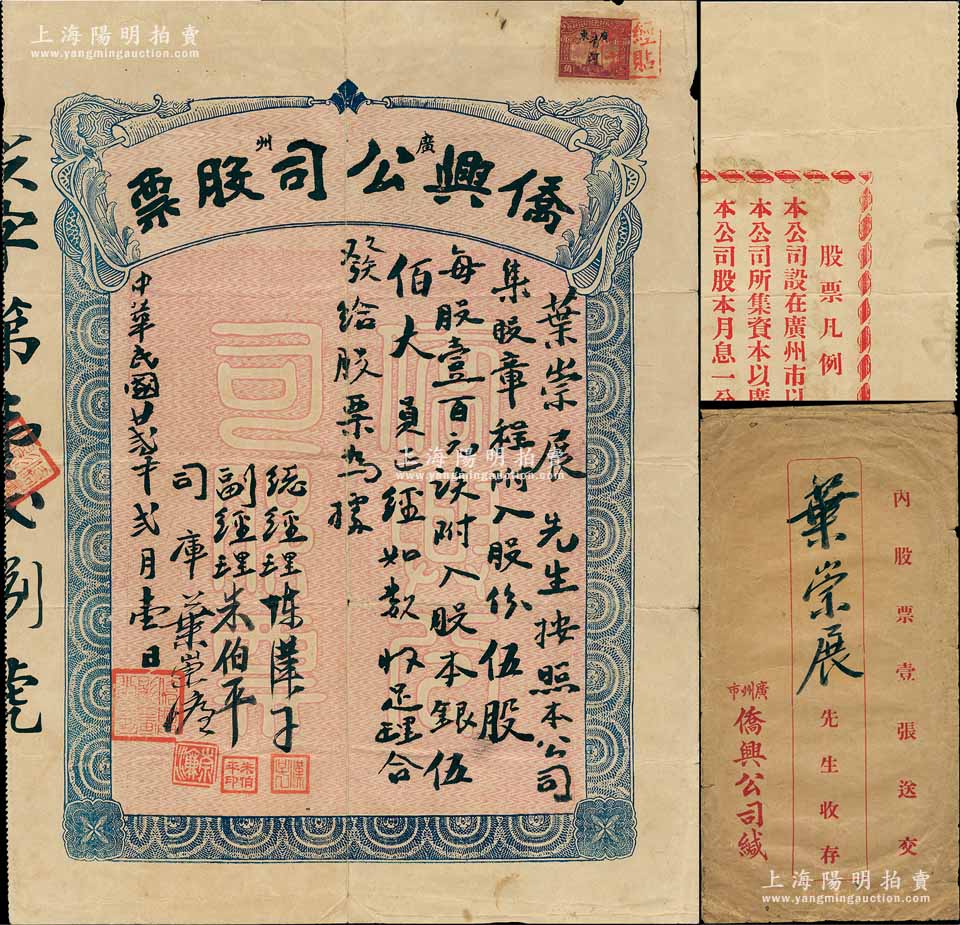 上海陽明拍賣
www.yangmingauction.com
經貼
廣州
僑興公司股票
葉崇展先生按照本公司
集股章程附入股份伍股
每股壹百元共附入股本銀伍
佰大員經如數收足理合
發給股票為據
總經理陳漢子
副經理朱伯平
司庫葉崇
中華民國廿貳年弍月壹日
朱伯平印
股票凡例
本公司設在廣州市以
本公司所集資本以廣
本公司股本月息一分
內股票壹張送交
葉崇展先生收存
廣州市
僑興公司緘
上海陽明拍賣
www.yangmingauction.com
上海陽明拍賣
www.yangmingauction.com